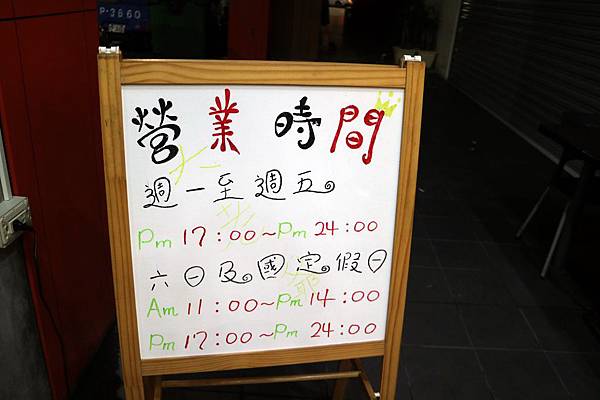 P·3660
營業時間
週一至週五
Pm 17:00~Pm 24:00
六日及國定假日
Am 11:00~Pm 14:00
Pm 17:00~Pm 24:00